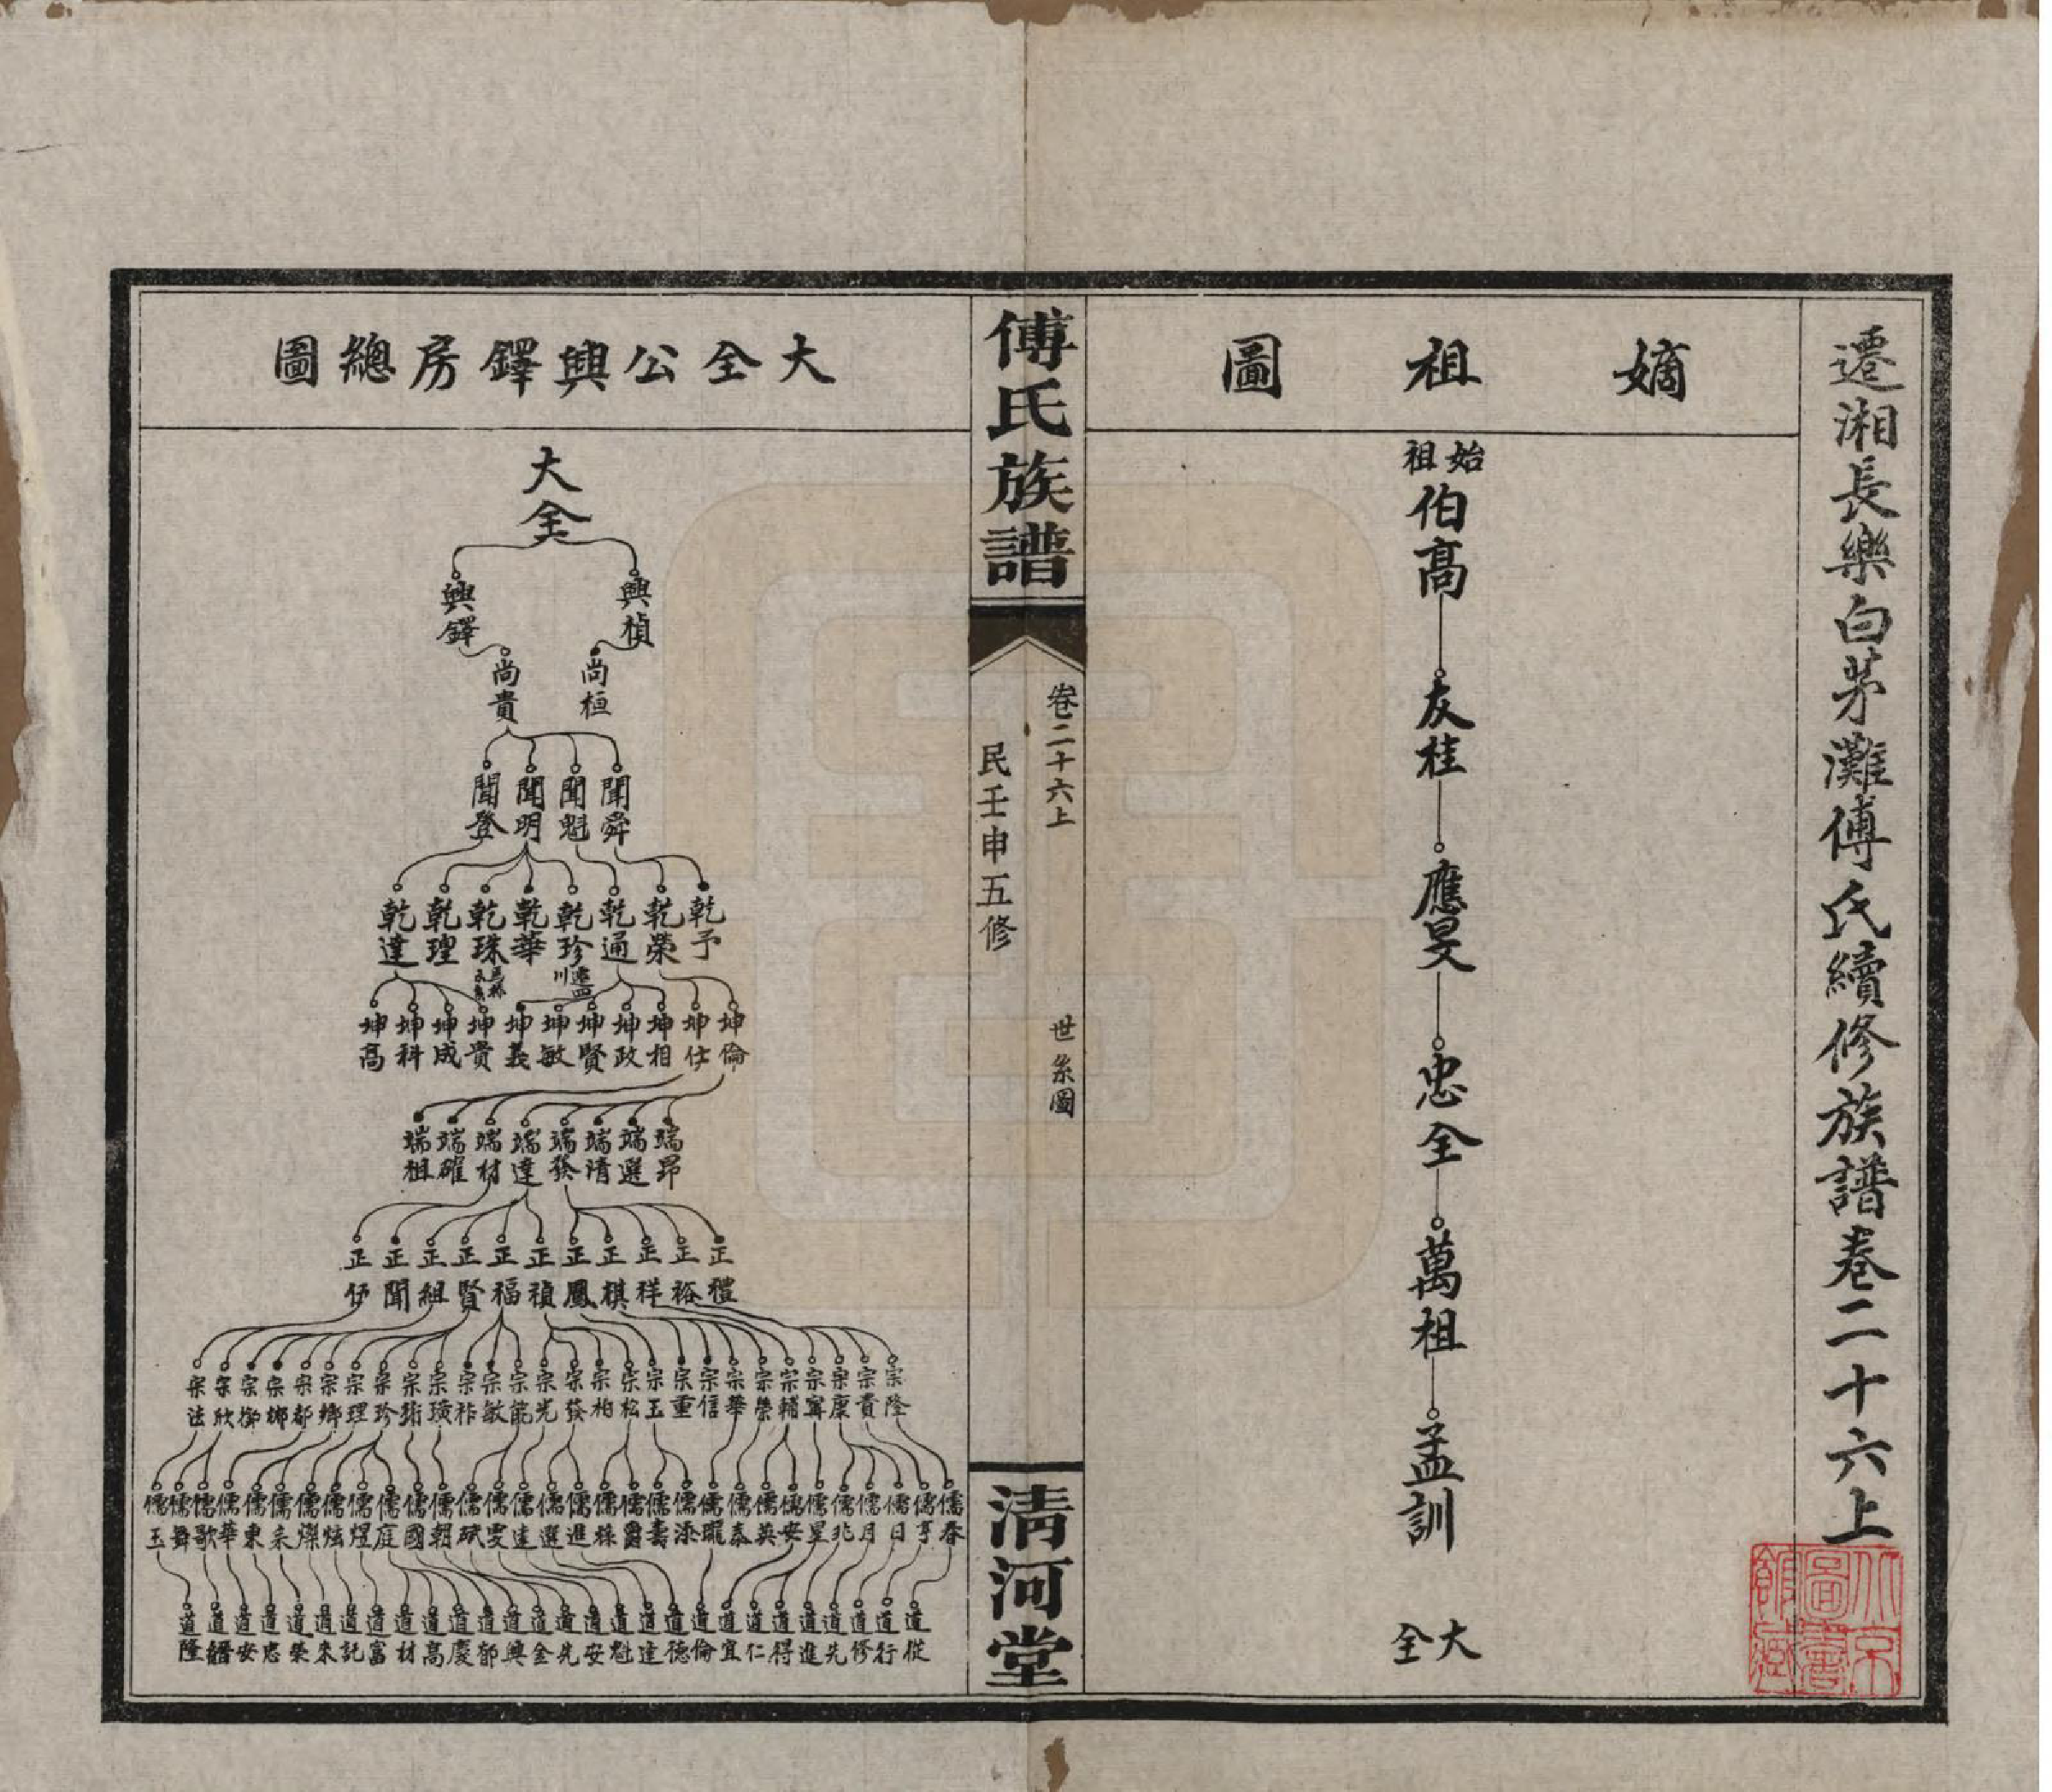 遷湘長樂白茅灘傅氏續修族譜卷二十六上
嫡祖圖
始祖
伯高
友桂
應旻
忠全
萬祖
孟訓
大全
傅氏族譜
卷二十六上
世系圖
民壬申五修
清河堂
大全公興鐸房總圖
大全
興禎 興鐸
尚桓 尚貴
聞舜 聞魁 聞明 聞登
乾予 乾榮 乾通 乾珍 乾華 乾珠 乾理 乾達
坤倫 坤仕 坤相 坤政 坤賢 坤敏 坤義 坤貴 坤成 坤科 坤高
端昂 端選 端隋 端發 端達 端材 端確 端祖
正禮 正裕 正祥 正祺 正鳳 正禎 正福 正賢 正組 正聞 正伊
宗隆 宗貴 宗康 宗寧 宗輔 宗榮 宗華 宗信 宗重 宗玉 宗松 宗柏 宗發 宗光 宗能 宗敏 宗祚 宗璜 宗珩 宗珍 宗理 宗鄉 宗都 宗欣 宗法
儒春 儒亨 儒日 儒月 儒兆 儒星 儒安 儒英 儒泰 儒瓏 儒添 儒壽 儒爵 儒祿 儒進 儒選 儒達 儒雯 儒斌 儒朝 儒國 儒庭 儒煜 儒炫 儒燦 儒來 儒東 儒華 儒歌 儒舞 儒玉
道從 道行 道修 道先 道進 道得 道仁 道宜 道倫 道德 道達 道魁 道安 道先 道金 道興 道郁 道慶 道高 道材 道富 道託 道來 道榮 道忠 道安 道縉 道隆
北京圖書館藏